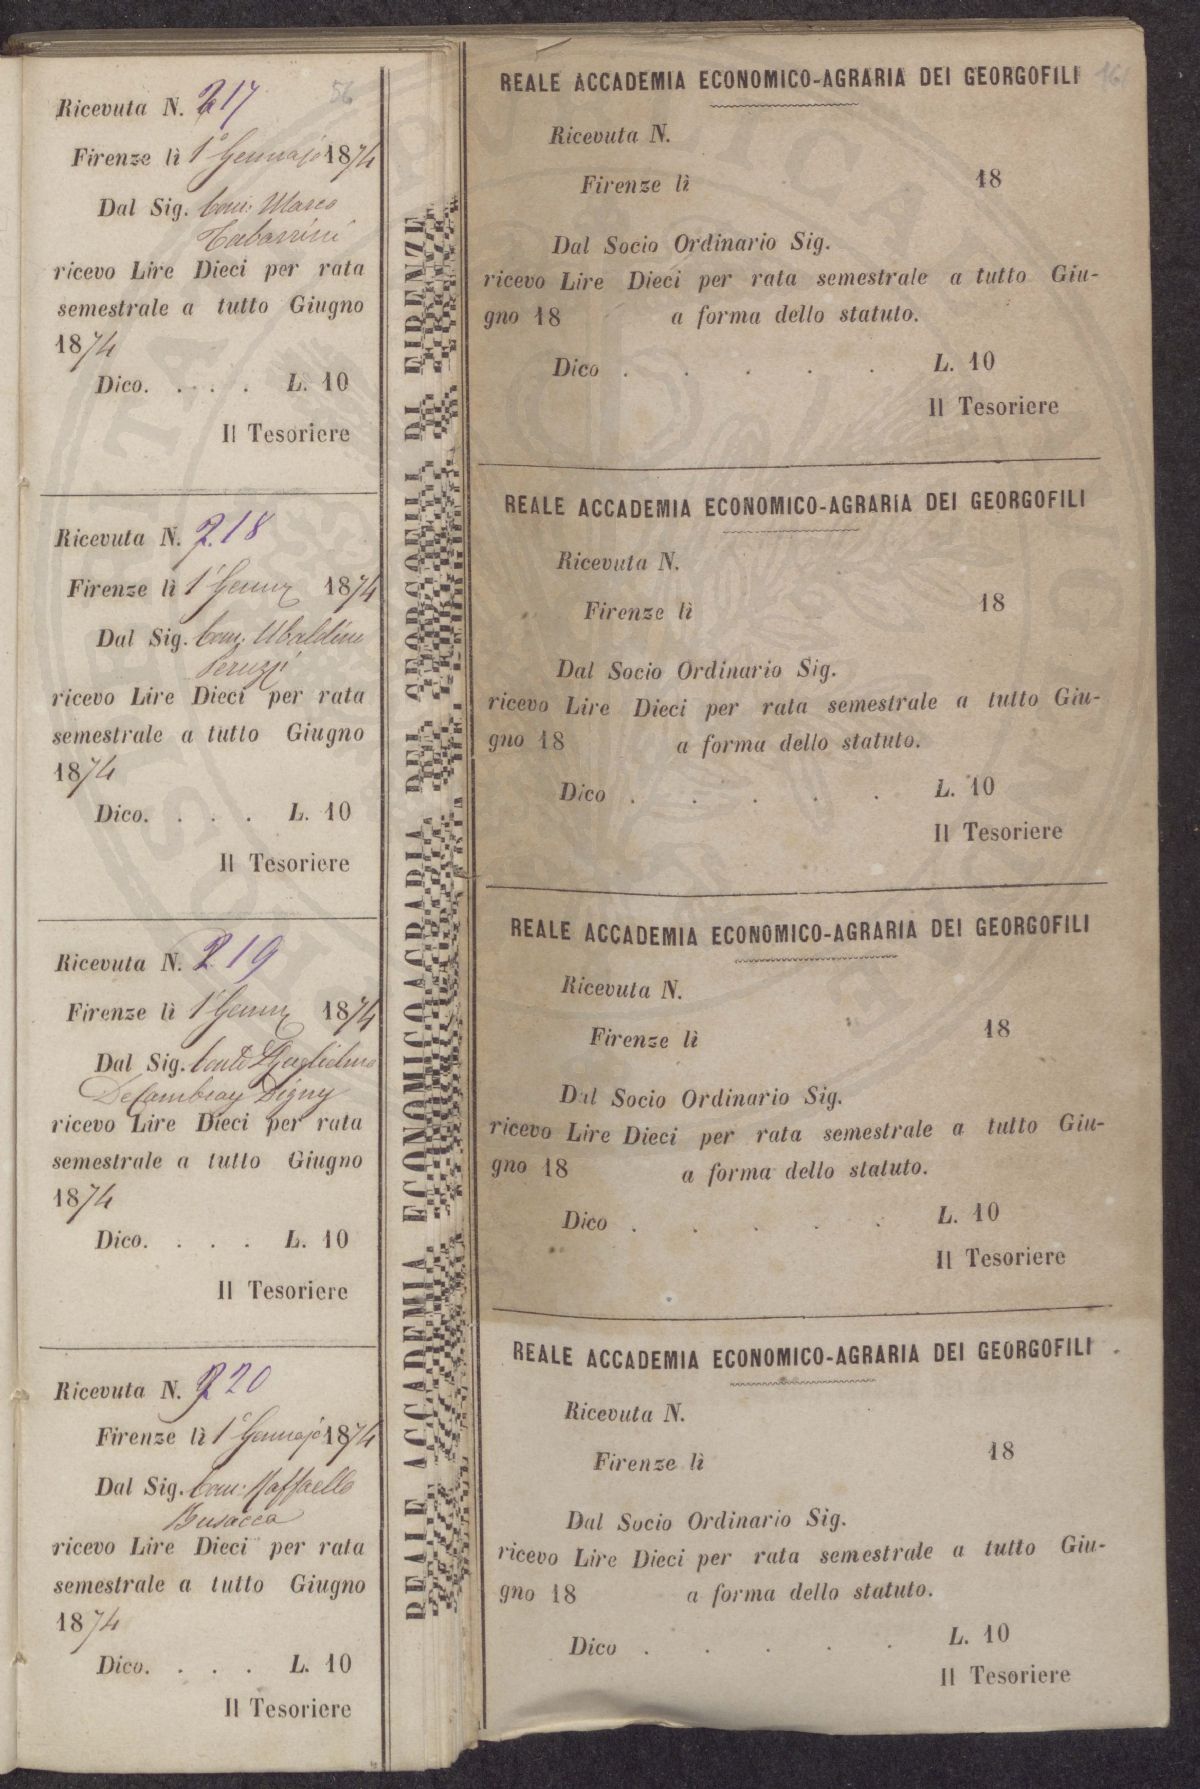 56
Ricevuta N. 217
Firenze lì 1° Gennajo 1874
Dal Sig. Com: Marco
Tabarrini
ricevo Lire Dieci per rata
semestrale a tutto Giugno
1874
Dico. . . . . L. 10
Il Tesoriere
Ricevuta N. 218
Firenze lì 1° Genn 1874
Dal Sig. Com: Ubaldino
Peruzzi
ricevo Lire Dieci per rata
semestrale a tutto Giugno
1874
Dico. . . . L. 10
Il Tesoriere
Ricevuta N. 219
Firenze lì 1° Genn 1874
Dal Sig. Conte Guglielmo
De Cambray Digny
ricevo Lire Dieci per rata
semestrale a tutto Giugno
1874
Dico. . . . L. 10
Il Tesoriere
Ricevuta N. 220
Firenze lì 1° Gennajo 1874
Dal Sig. Com: Raffaello
Busacca
ricevo Lire Dieci per rata
semestrale a tutto Giugno
1874
Dico. . . . L. 10
Il Tesoriere
REALE ACCADEMIA ECONOMICO AGRARIA DEI GEORGOFILI DI FIRENZE
REALE ACCADEMIA ECONOMICO-AGRARIA DEI GEORGOFILI
Ricevuta N.
Firenze lì 18
Dal Socio Ordinario Sig.
ricevo Lire Dieci per rata semestrale a tutto Giu-
gno 18 a forma dello statuto.
Dico . . . . . L. 10
Il Tesoriere
REALE ACCADEMIA ECONOMICO-AGRARIA DEI GEORGOFILI
Ricevuta N.
Firenze lì 18
Dal Socio Ordinario Sig.
ricevo Lire Dieci per rata semestrale a tutto Giu-
gno 18 a forma dello statuto.
Dico . . . . . L. 10
Il Tesoriere
REALE ACCADEMIA ECONOMICO-AGRARIA DEI GEORGOFILI
Ricevuta N.
Firenze lì 18
Dal Socio Ordinario Sig.
ricevo Lire Dieci per rata semestrale a tutto Giu-
gno 18 a forma dello statuto.
Dico . . . . . L. 10
Il Tesoriere
REALE ACCADEMIA ECONOMICO-AGRARIA DEI GEORGOFILI
Ricevuta N.
Firenze lì 18
Dal Socio Ordinario Sig.
ricevo Lire Dieci per rata semestrale a tutto Giu-
gno 18 a forma dello statuto.
Dico . . . . . L. 10
Il Tesoriere